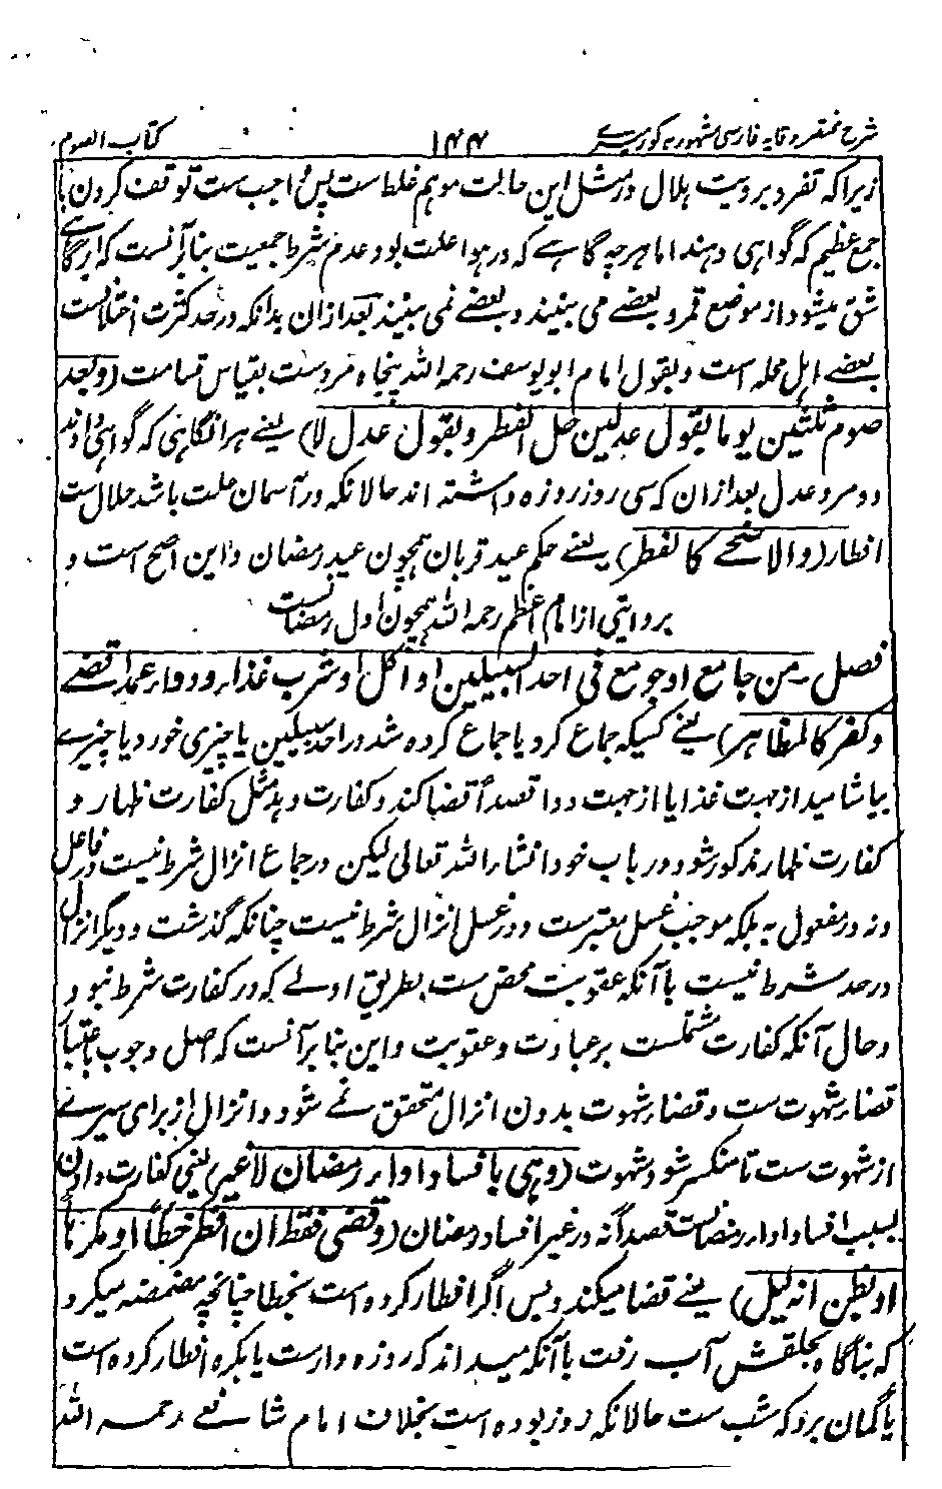 شرح مختصر وقایه فارسی مشهور به کورسیرے ۱۴۴ کتاب الصوم
زیرا که تفرد برویت ہلال در مثل این حالت موہم غلط است پس واجب ست توقف کردن تا
جمع عظیم که گواہی دہند اما ہرچه گاہے که در ہوا علت بود عدم شرط جمعیت بنا بر آنست که ابر گاہے
شق میشود از موضع قمر و بعضے می بینند و بعضے نمی بینند بعد ازان بدانکه در حد کثرت اختلافست
بعضے اہل محله است و بقول امام ابو یوسف رحمه الله پنجاه مرد ست بقیاس قسامت (و بعد
صوم ثلثین یوما بقول عدلین حل الفطر و بقول عدل لا) یعنے ہر انگاہی که گواہی دادند
دو مرد عدل بعد ازان که سی روز روزه داشته اند حالانکه در آسمان علت باشد حلال ست
افطار (والاضحے کالفطر) یعنے حکم عید قربان ہمچون عید رمضان و این اصح است و
بروایتی از امام اعظم رحمه الله ہمچون اول رمضانست
فصل ـ من جامع او جومع فی احد السبیلین او اکل او شرب غذاء و دواء عمدا قضے
و کفر کالمظاہر) یعنے کسیکه جماع کرد یا جماع کرده شد در احد سبیلین یا چیزی خورد یا چیزے
بیاشامید از جہت غذا یا از جہت دوا قصداً قضا کند و کفارت دہد مثل کفارت ظہار و
کفارت ظہار مذکور شود در باب خود انشاء الله تعالی لیکن در جماع انزال شرط نیست در فاعل
و نه در مفعول به بلکه موجب غسل معتبر ست و در غسل انزال شرط نیست چنانکه گذشت و دیگر انزال
در حد شرط نیست با آنکه عقوبت محض ست بطریق اولے که در کفارت شرط نبود
و حال آنکه کفارت مشتملست بر عبادت و عقوبت و این بنا بر آنست که اصل وجوب باعتبار
قضاء شہوت ست و قضاء شہوت بدون انزال متحقق نمے شود و انزال از برای سیرے
از شہوت ست تا منکسر شود شہوت (وہی بافساد اداء رمضان لا غیر) یعنی کفارت دادن
بسبب افساد اداء رمضانست قصداً نه در غیر افساد رمضان (و قضی فقط ان افطر خطأً او مکرہاً
او بظن انه لیل) یعنے قضا میکند و بس اگر افطار کرده است بخطا چنانچه مضمضه میکرد
که بناگاه بحلقش آب رفت با آنکه میداند که روزه دارست یا بکره افطار کرده است
یا گمان برد که شب ست حالانکه روز بوده است بخلاف امام شافعے رحمه الله